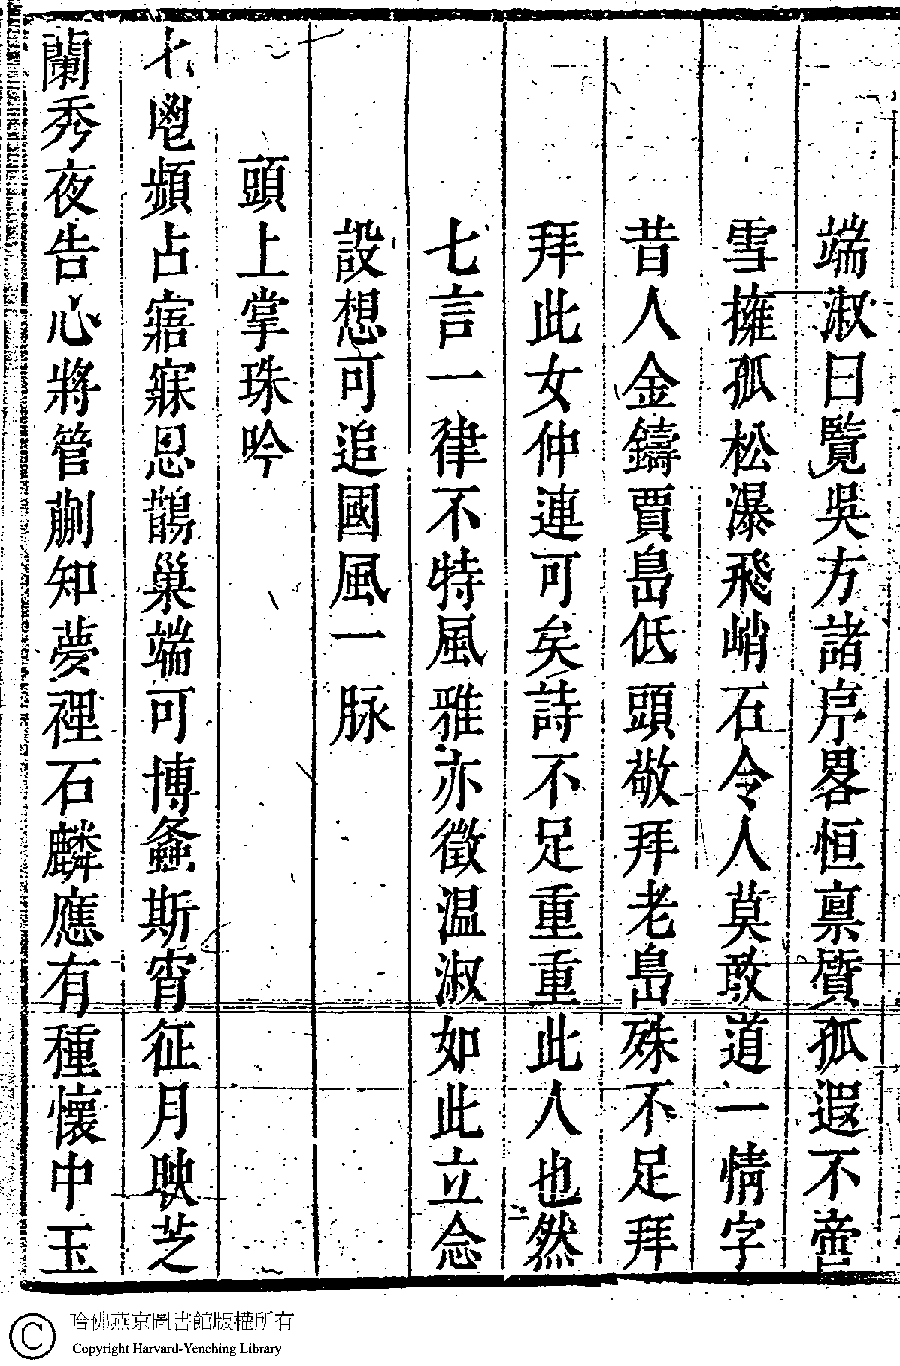 端淑曰覧吳方諸序畧恒禀質孤遐不啻
雪擁孤松瀑飛峭石令人莫敢道一情字
昔人金鑄賈島低頭敬拜老島殊不足拜
拜此女仲連可矣詩不足重重此人也然
七言一律不特風雅亦徵温淑如此立念
設想可追國風一脉
頭上掌珠吟
七鬯頻占寤寐思鵲巢端可博螽斯宵征月映芝
蘭秀夜告心將管蒯知夢裡石麟應有種懷中玉
哈佛燕京圖書館版權所有
Copyright Harvard-Yenching Library